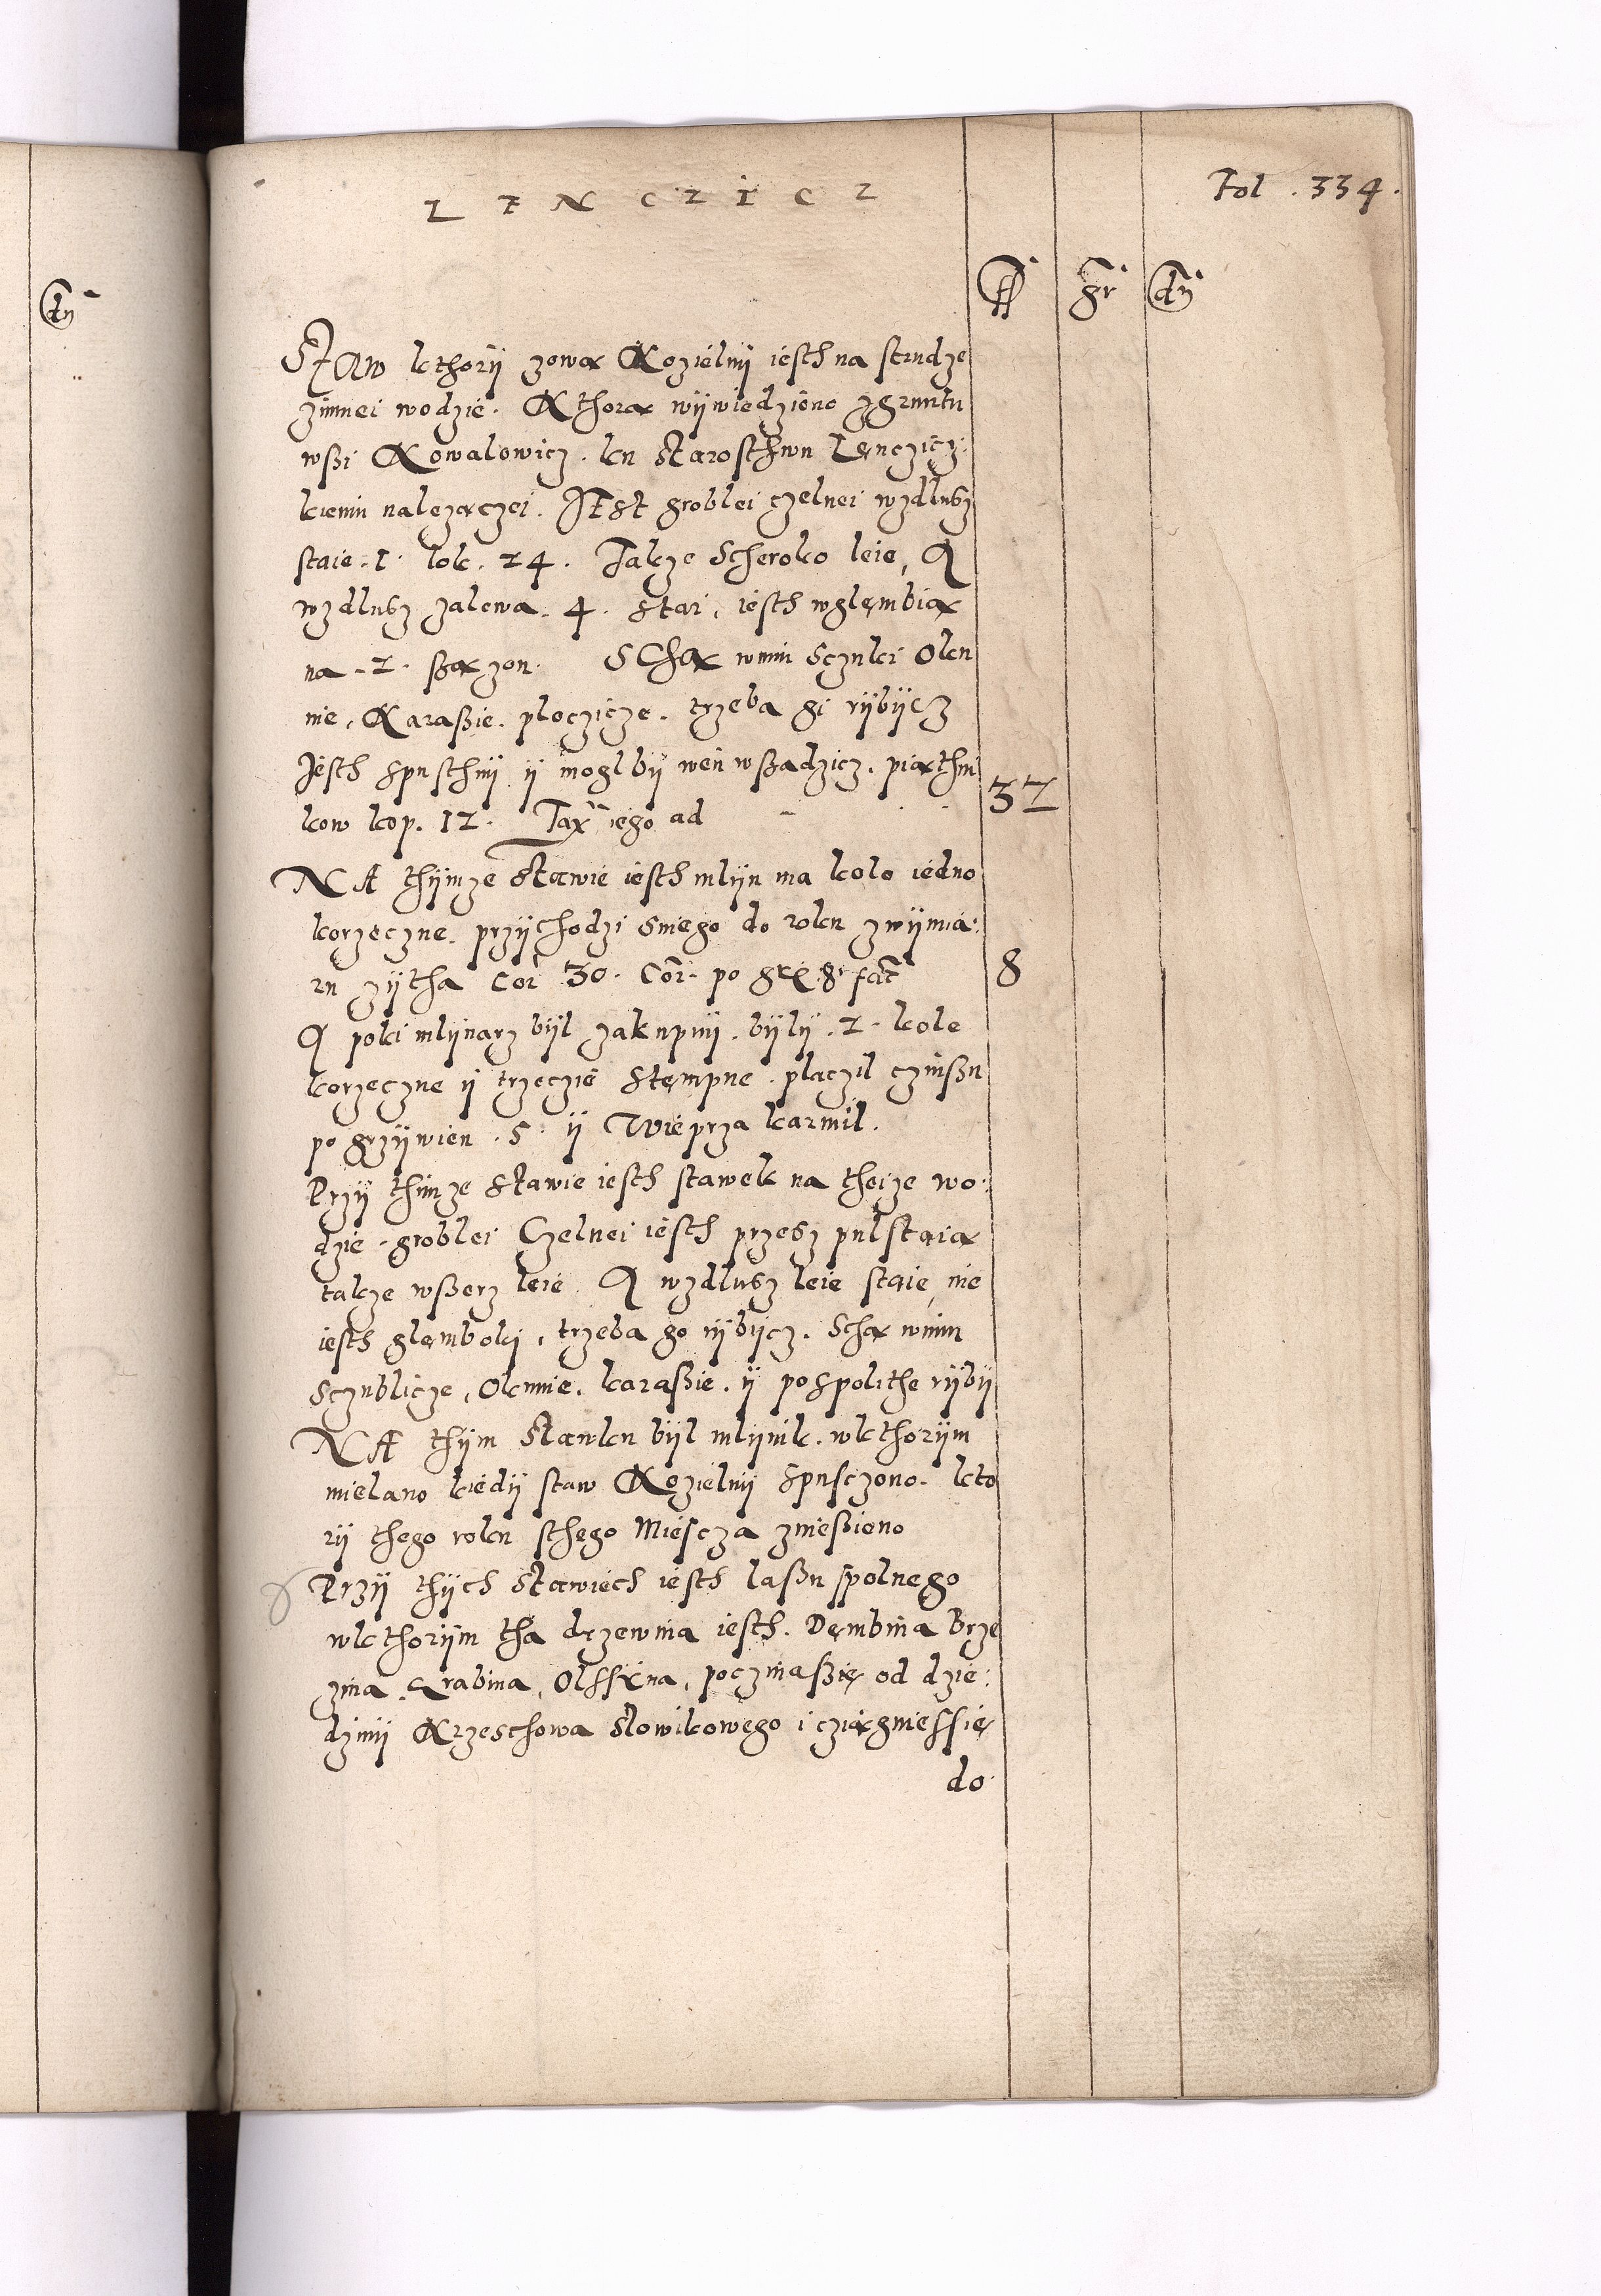 LENCZICZ
Fol. 334.
ff gr dn
dn
STAW kthorÿ zową Kozielnÿ iesth na strudze
zimnei wodzie. Kthorą wÿwiedziono zgruntu
wßi Kowalowicz. ku Starosthwu Lęnczicz:
kiemu należączei. IEST groblei czelnei wzdlusz
staie. 1. lok. 24. Takze Scheroko leie, A
wzdlusz zalewa. 4. stai, iesth wglęmbią
na. 2. sząźon. SChą wnim Sczuki Oku
nie, Karaßie. ploczicze. trzeba gi rÿbÿcz
Jesth spusthnÿ ÿ moglbÿ weń wßadzicz. piąthni
kow kop. 12. Tax iego ad
32
NA thÿmze Stawie iesth mlÿn ma kolo iedno
korzeczne. przÿchodzi Sniego do roku zwÿmia:
ru zÿtha cor 30. Cor. po gr 8 facit
8
A poki mlÿnarz bÿl zakupnÿ. bÿlÿ. 2. kole
korzeczne ÿ trzeczie Stęmpne. placzil czinßu
po grzÿwien. 5. ÿ Wieprza karmil.
Przÿ thimze Stawie iesth stawek na theize wo:
dzie. groblei Czelnei iesth przesz pulstaią
takze wßerz leie A wzdlusz leie staie, nie
iesth glęmboki, trzeba go rÿbÿcz. Schą wnim
Sczublicze, Okunie. karaßie. ÿ pospolithe rÿbÿ
NA thÿm Stawku bÿl mlÿnik. wkthorÿm
mielano kiedÿ staw Kozielnÿ spusczono. kto
rÿ thego roku sthego Miescza znießiono
Przÿ thÿch Stawiech iesth laßu spolnego
wkthorÿm tha drzewina iesth. Dęmbina Brze
zina. Grabina, Olssÿna, poczinaßię od dzie:
dzinÿ Krzeschowa Slowikowego i cziągniessię
do